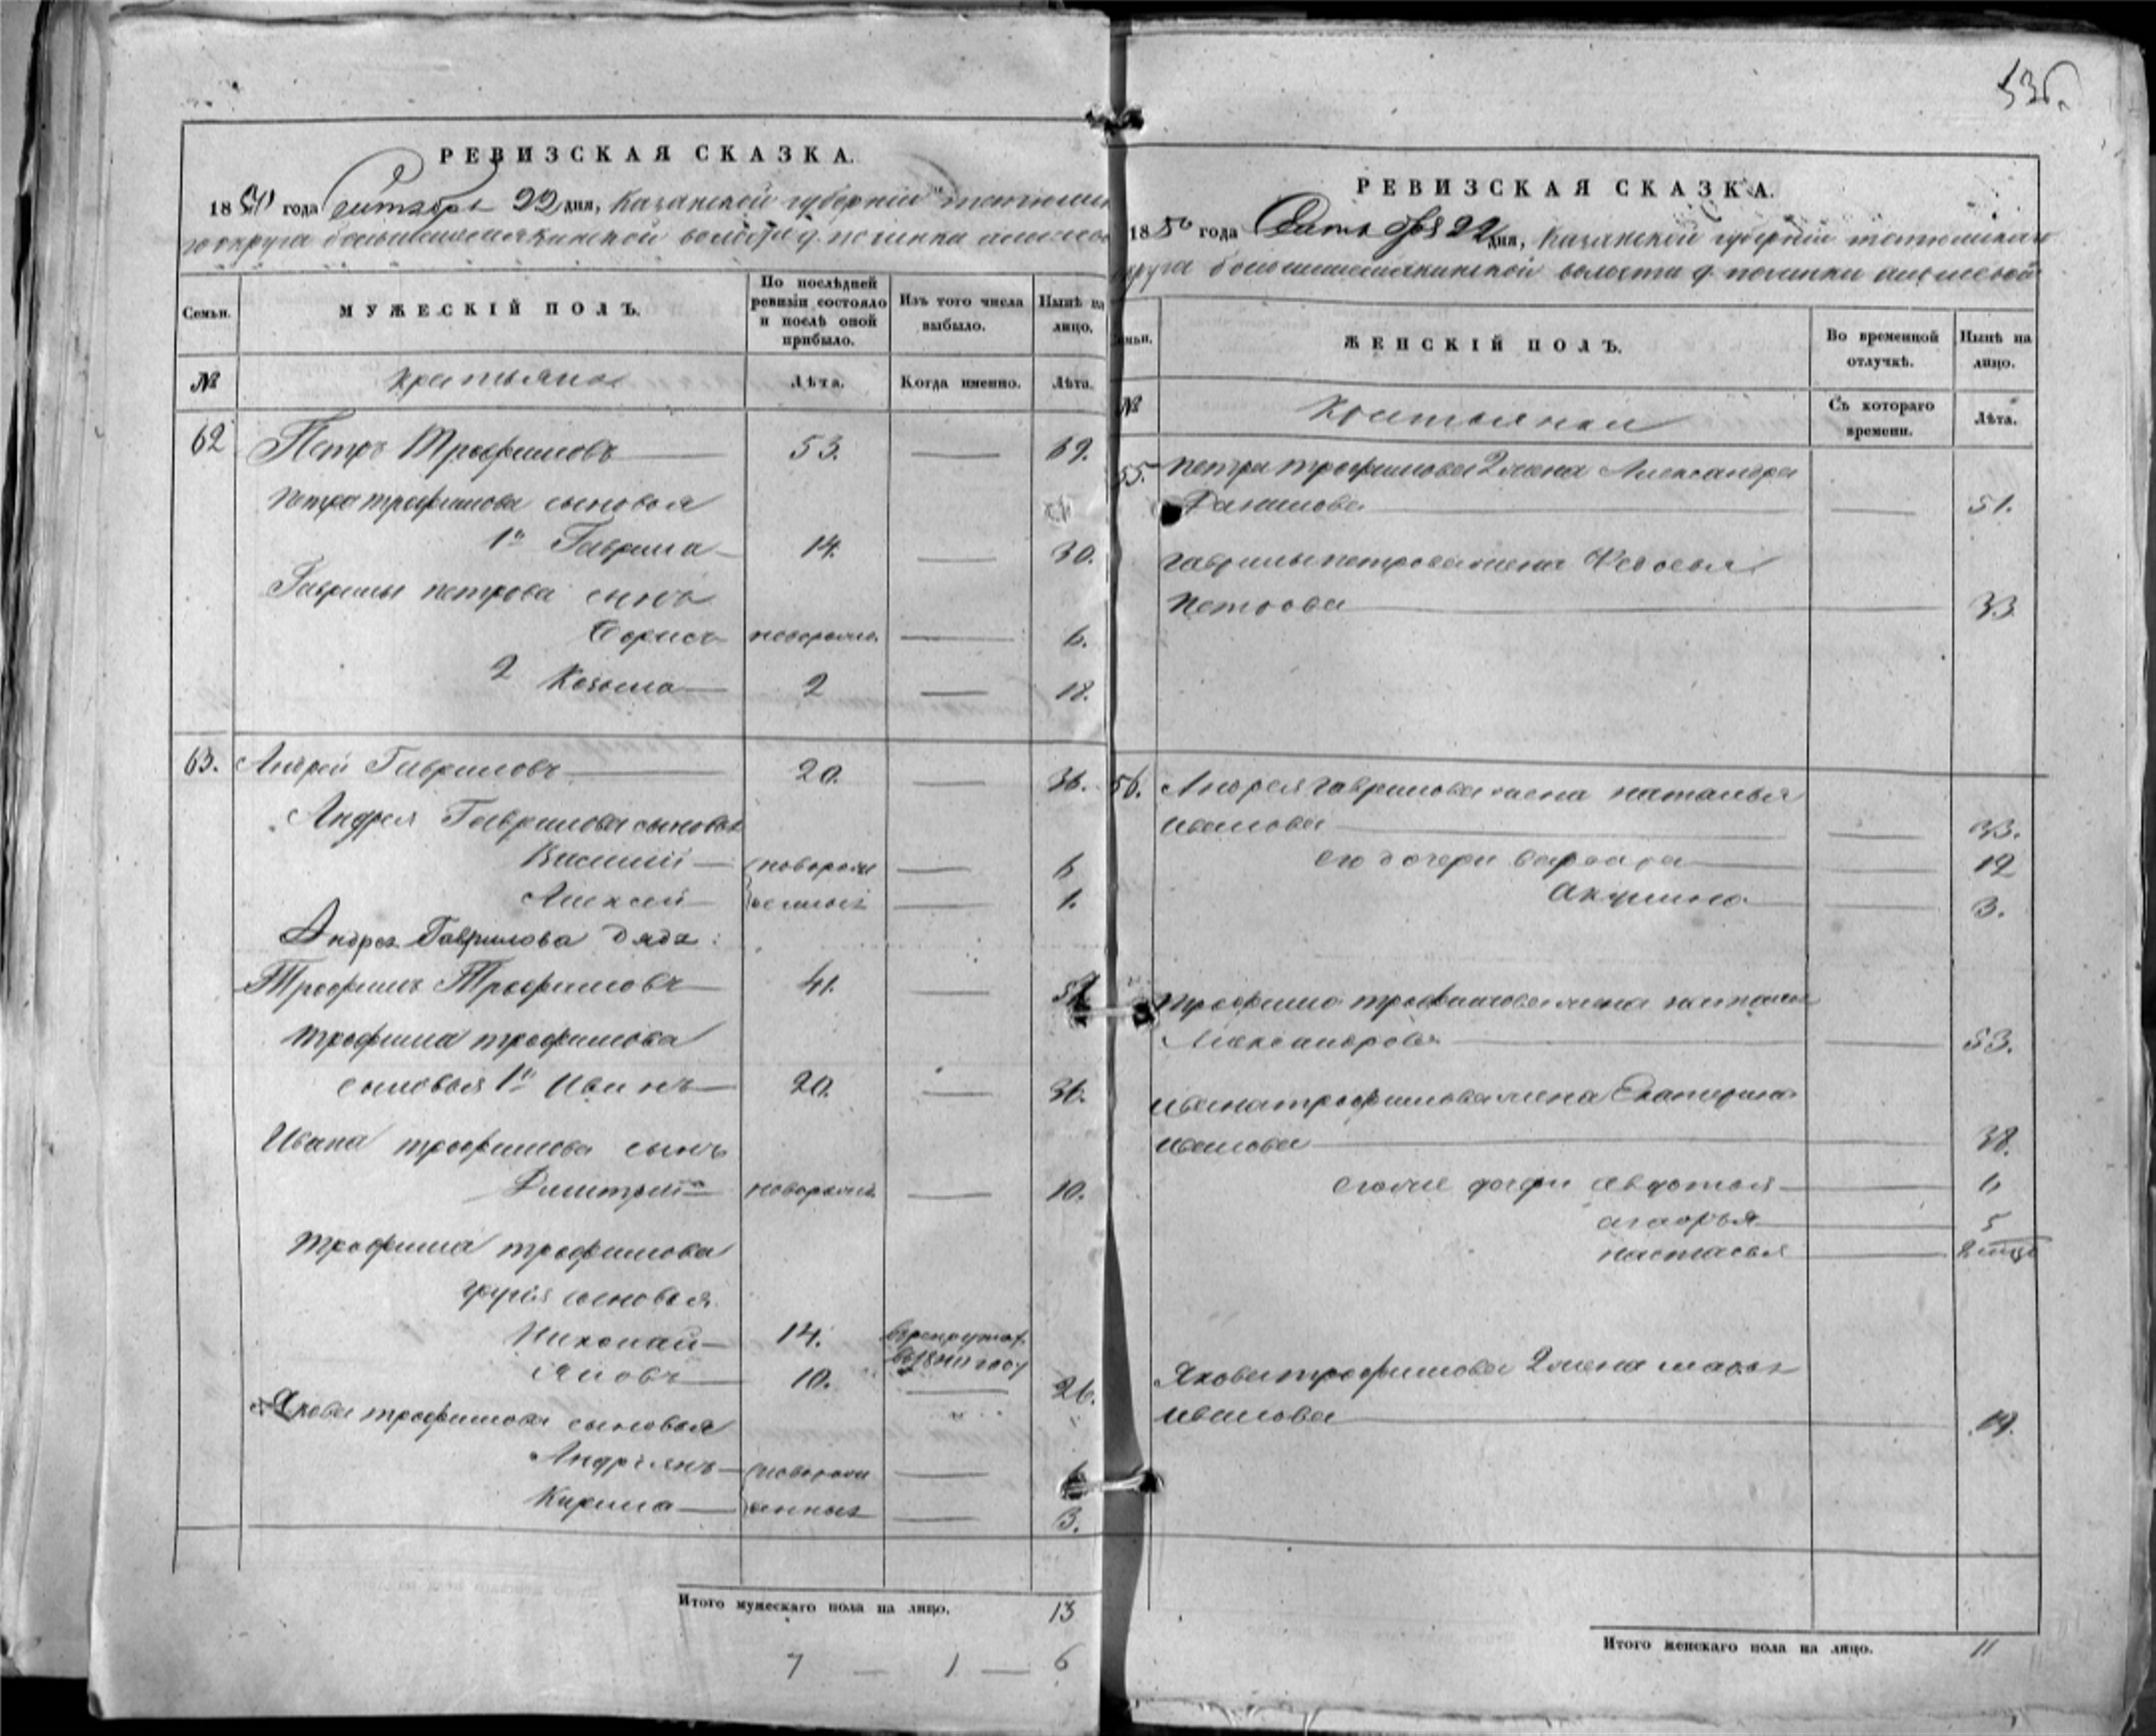 536.
РЕВИЗСКАЯ СКАЗКА.
1850 года Октября 22 дня, Казанской губерніи
округа волости д. починка
Семьи.
МУЖЕСКІЙ ПОЛЪ.
По послѣдней ревизіи состояло и послѣ оной прибыло.
Изъ того числа выбыло.
Нынѣ на лицо.
№
Крестьяне
Лѣта.
Когда именно.
Лѣта.
62 Петръ Трофимовъ 53. 69.
Петра Трофимова сыновья
1й Гаврила 14. 30.
Гаврилы петрова сынъ
Борисъ новорожд. 6.
2 Козьма 2 18.
63. Андрей Гавриловъ 20. 36.
Андрея Гаврилова сыновья
Василий новорожд 6
Алексей енные 1.
Андрея Гаврилова дядя:
Трофимъ Трофимовъ 41.
Трофима трофимова
сыновья 1й Иванъ 20. 36.
Ивана трофимова сынъ
Дмитрий новорожд 10.
Трофима трофимова
другія сыновья
Николай 14. в рекруты
году
Яковъ 10. 26.
Якова трофимова сыновья
Андріянъ новорожд
Кирила енные 3.
Итого мужескаго пола на лицо. 13
7 — 1 — 6
РЕВИЗСКАЯ СКАЗКА.
1850 года Октября 22 дня, Казанской губерніи тетюшскаго
округа волости д. починка
Семьи.
ЖЕНСКІЙ ПОЛЪ.
Во временной отлучкѣ.
Нынѣ на лицо.
№
Крестьянки
Съ котораго времени.
Лѣта.
55. Петра трофимова 2 жена Александра
Данилова 51.
Гаврилы петрова жена Федосья
Петрова 33
56. Андрея гаврилова жена наталья
иванова 33.
его дочери варвара 12
Акулина 3.
Трофима трофимова жена
Александрова 53.
ивана трофимова жена Екатерина
иванова 38.
его же дочери Авдотья
5
настасья
Якова трофимова 2 жена марья
иванова 19.
Итого женскаго пола на лицо. 11